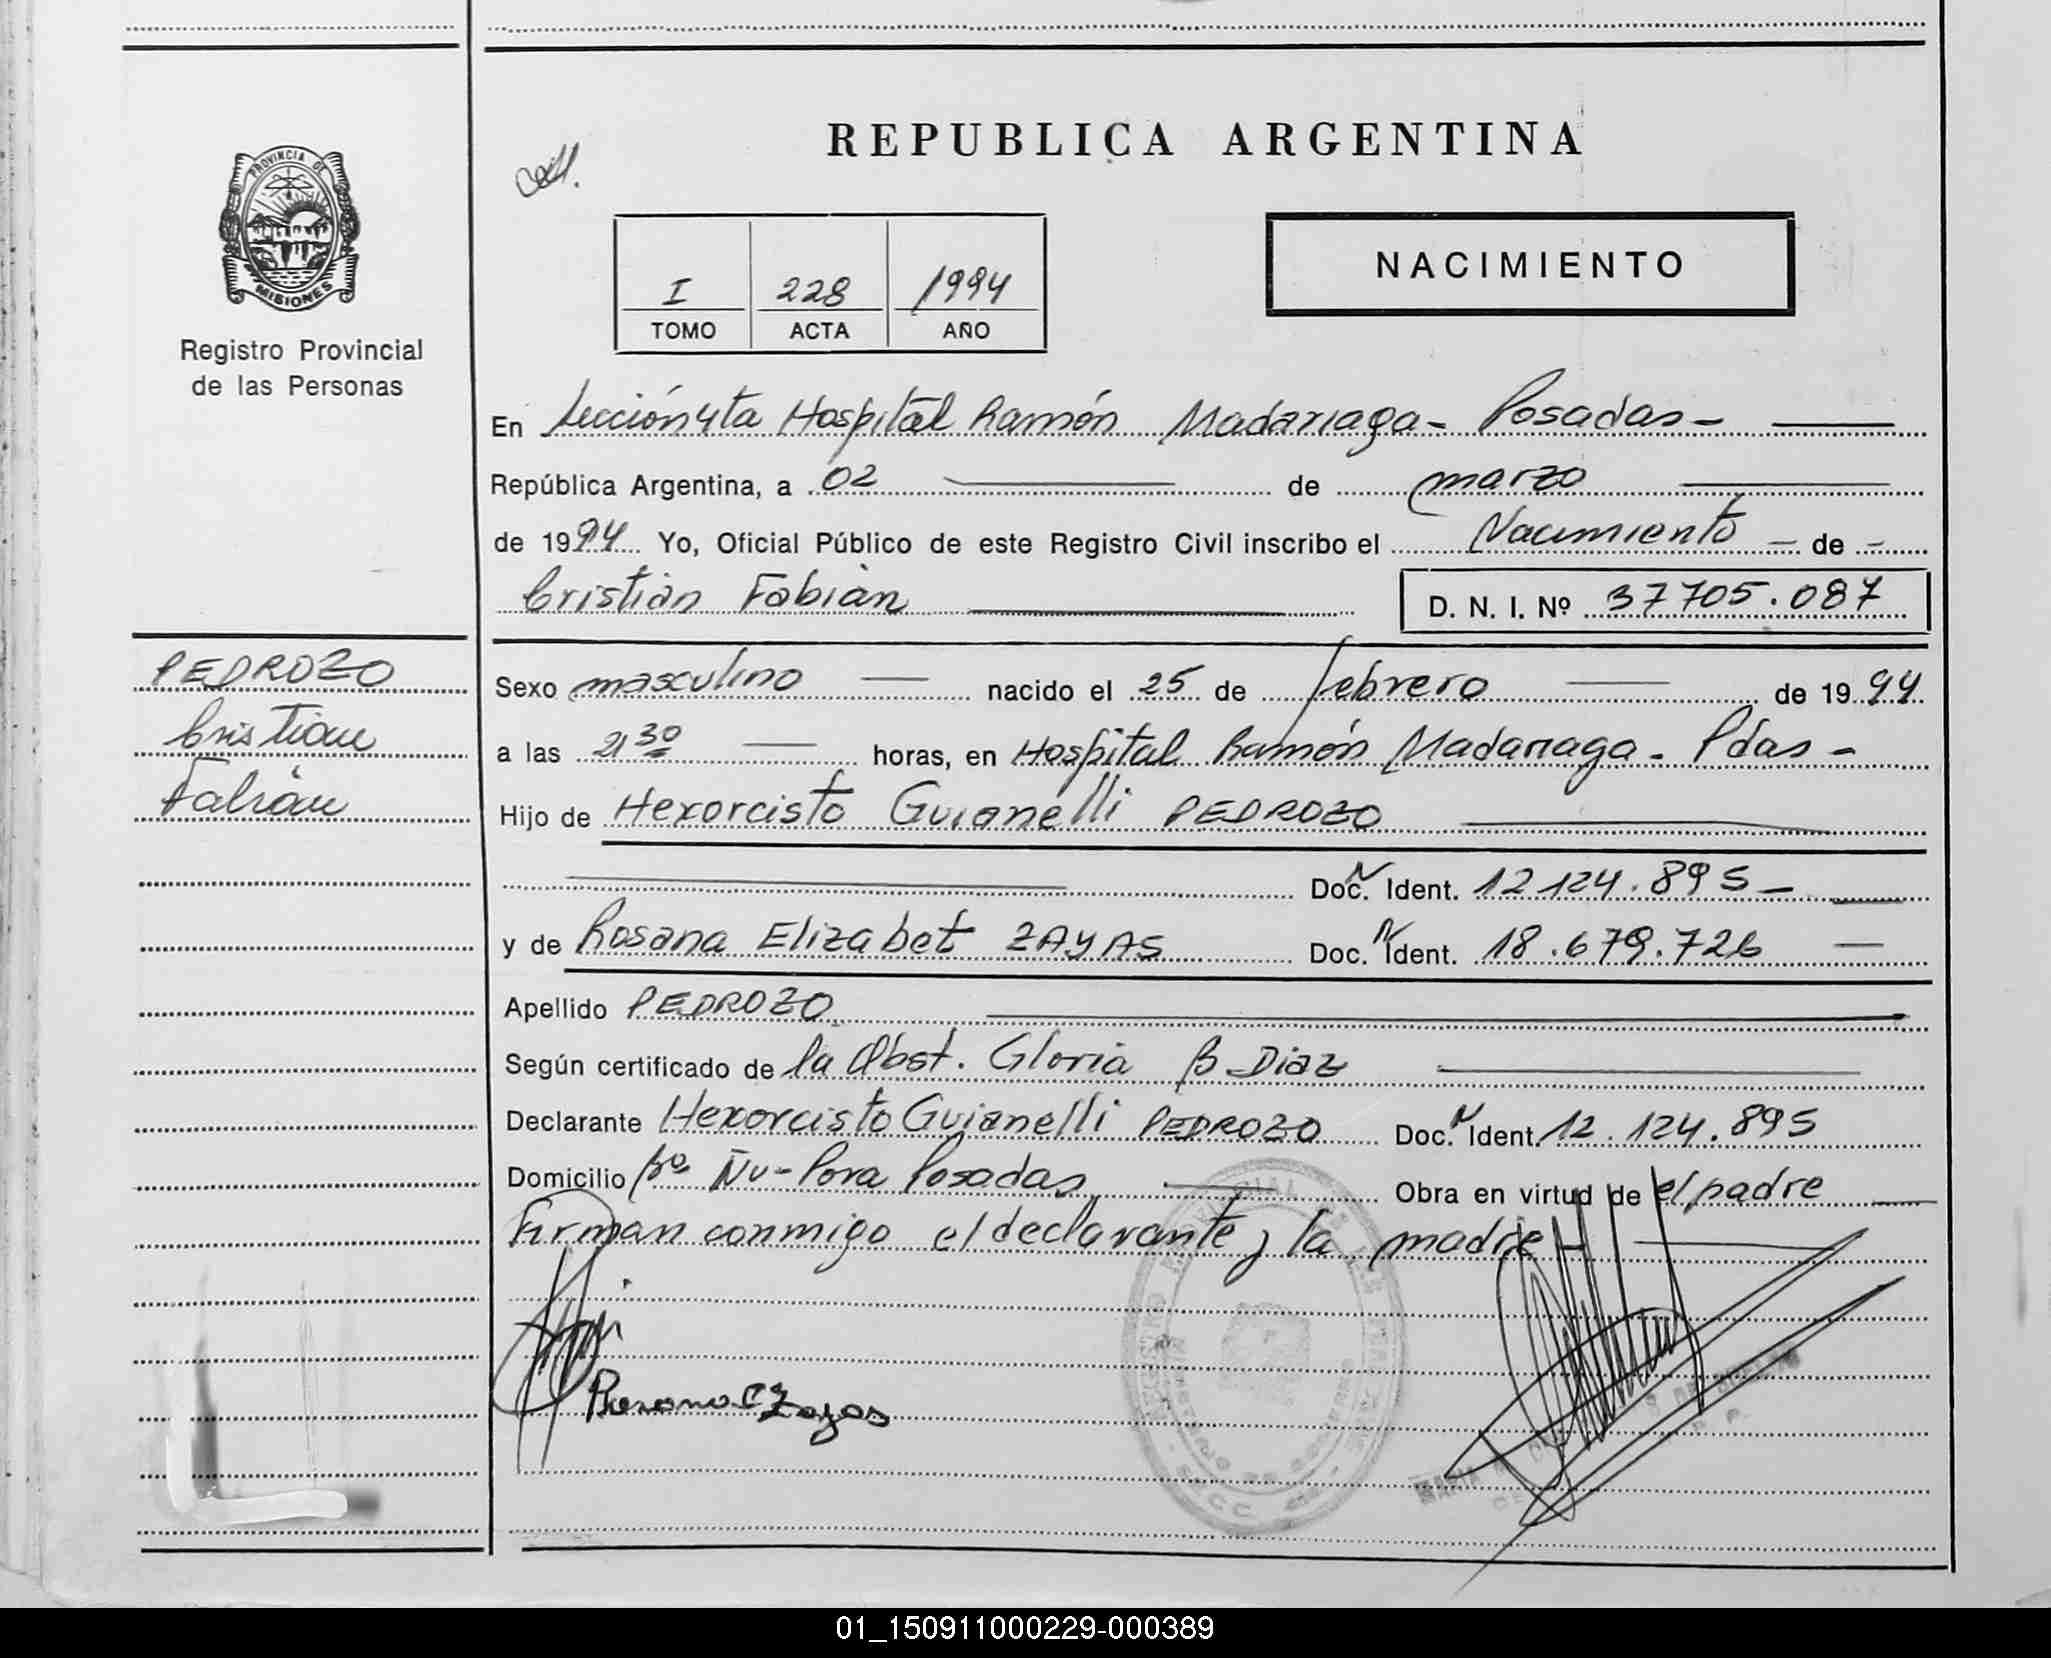 REPUBLICA ARGENTINA
PROVINCIA DE
MISIONES
Registro Provincial
de las Personas
I 228 1994
TOMO ACTA AÑO
NACIMIENTO
En Sección 4ta Hospital Ramón Madariaga - Posadas -
República Argentina, a 02 de marzo
de 1994 Yo, Oficial Público de este Registro Civil inscribo el Nacimiento - de -
Cristian Fabián D. N. I. Nº 37705.087
PEDROZO
Cristian
Fabián
Sexo masculino nacido el 25 de febrero de 1994
a las 21 30 horas, en Hospital Ramón Madariaga - Pdas -
Hijo de Hexorcisto Guianelli PEDROZO
Doc. N Ident. 12124.895 -
y de Rosana Elizabet ZAYAS Doc. N Ident. 18.679.726
Apellido PEDROZO
Según certificado de la Obst. Gloria B Diaz
Declarante Hexorcisto Guianelli PEDROZO Doc. N Ident. 12.124.895
Domicilio Bº Ñu-Pora Posadas Obra en virtud de el padre
Firman conmigo el declarante y la madre
Rosana E Zayas
01_150911000229-000389